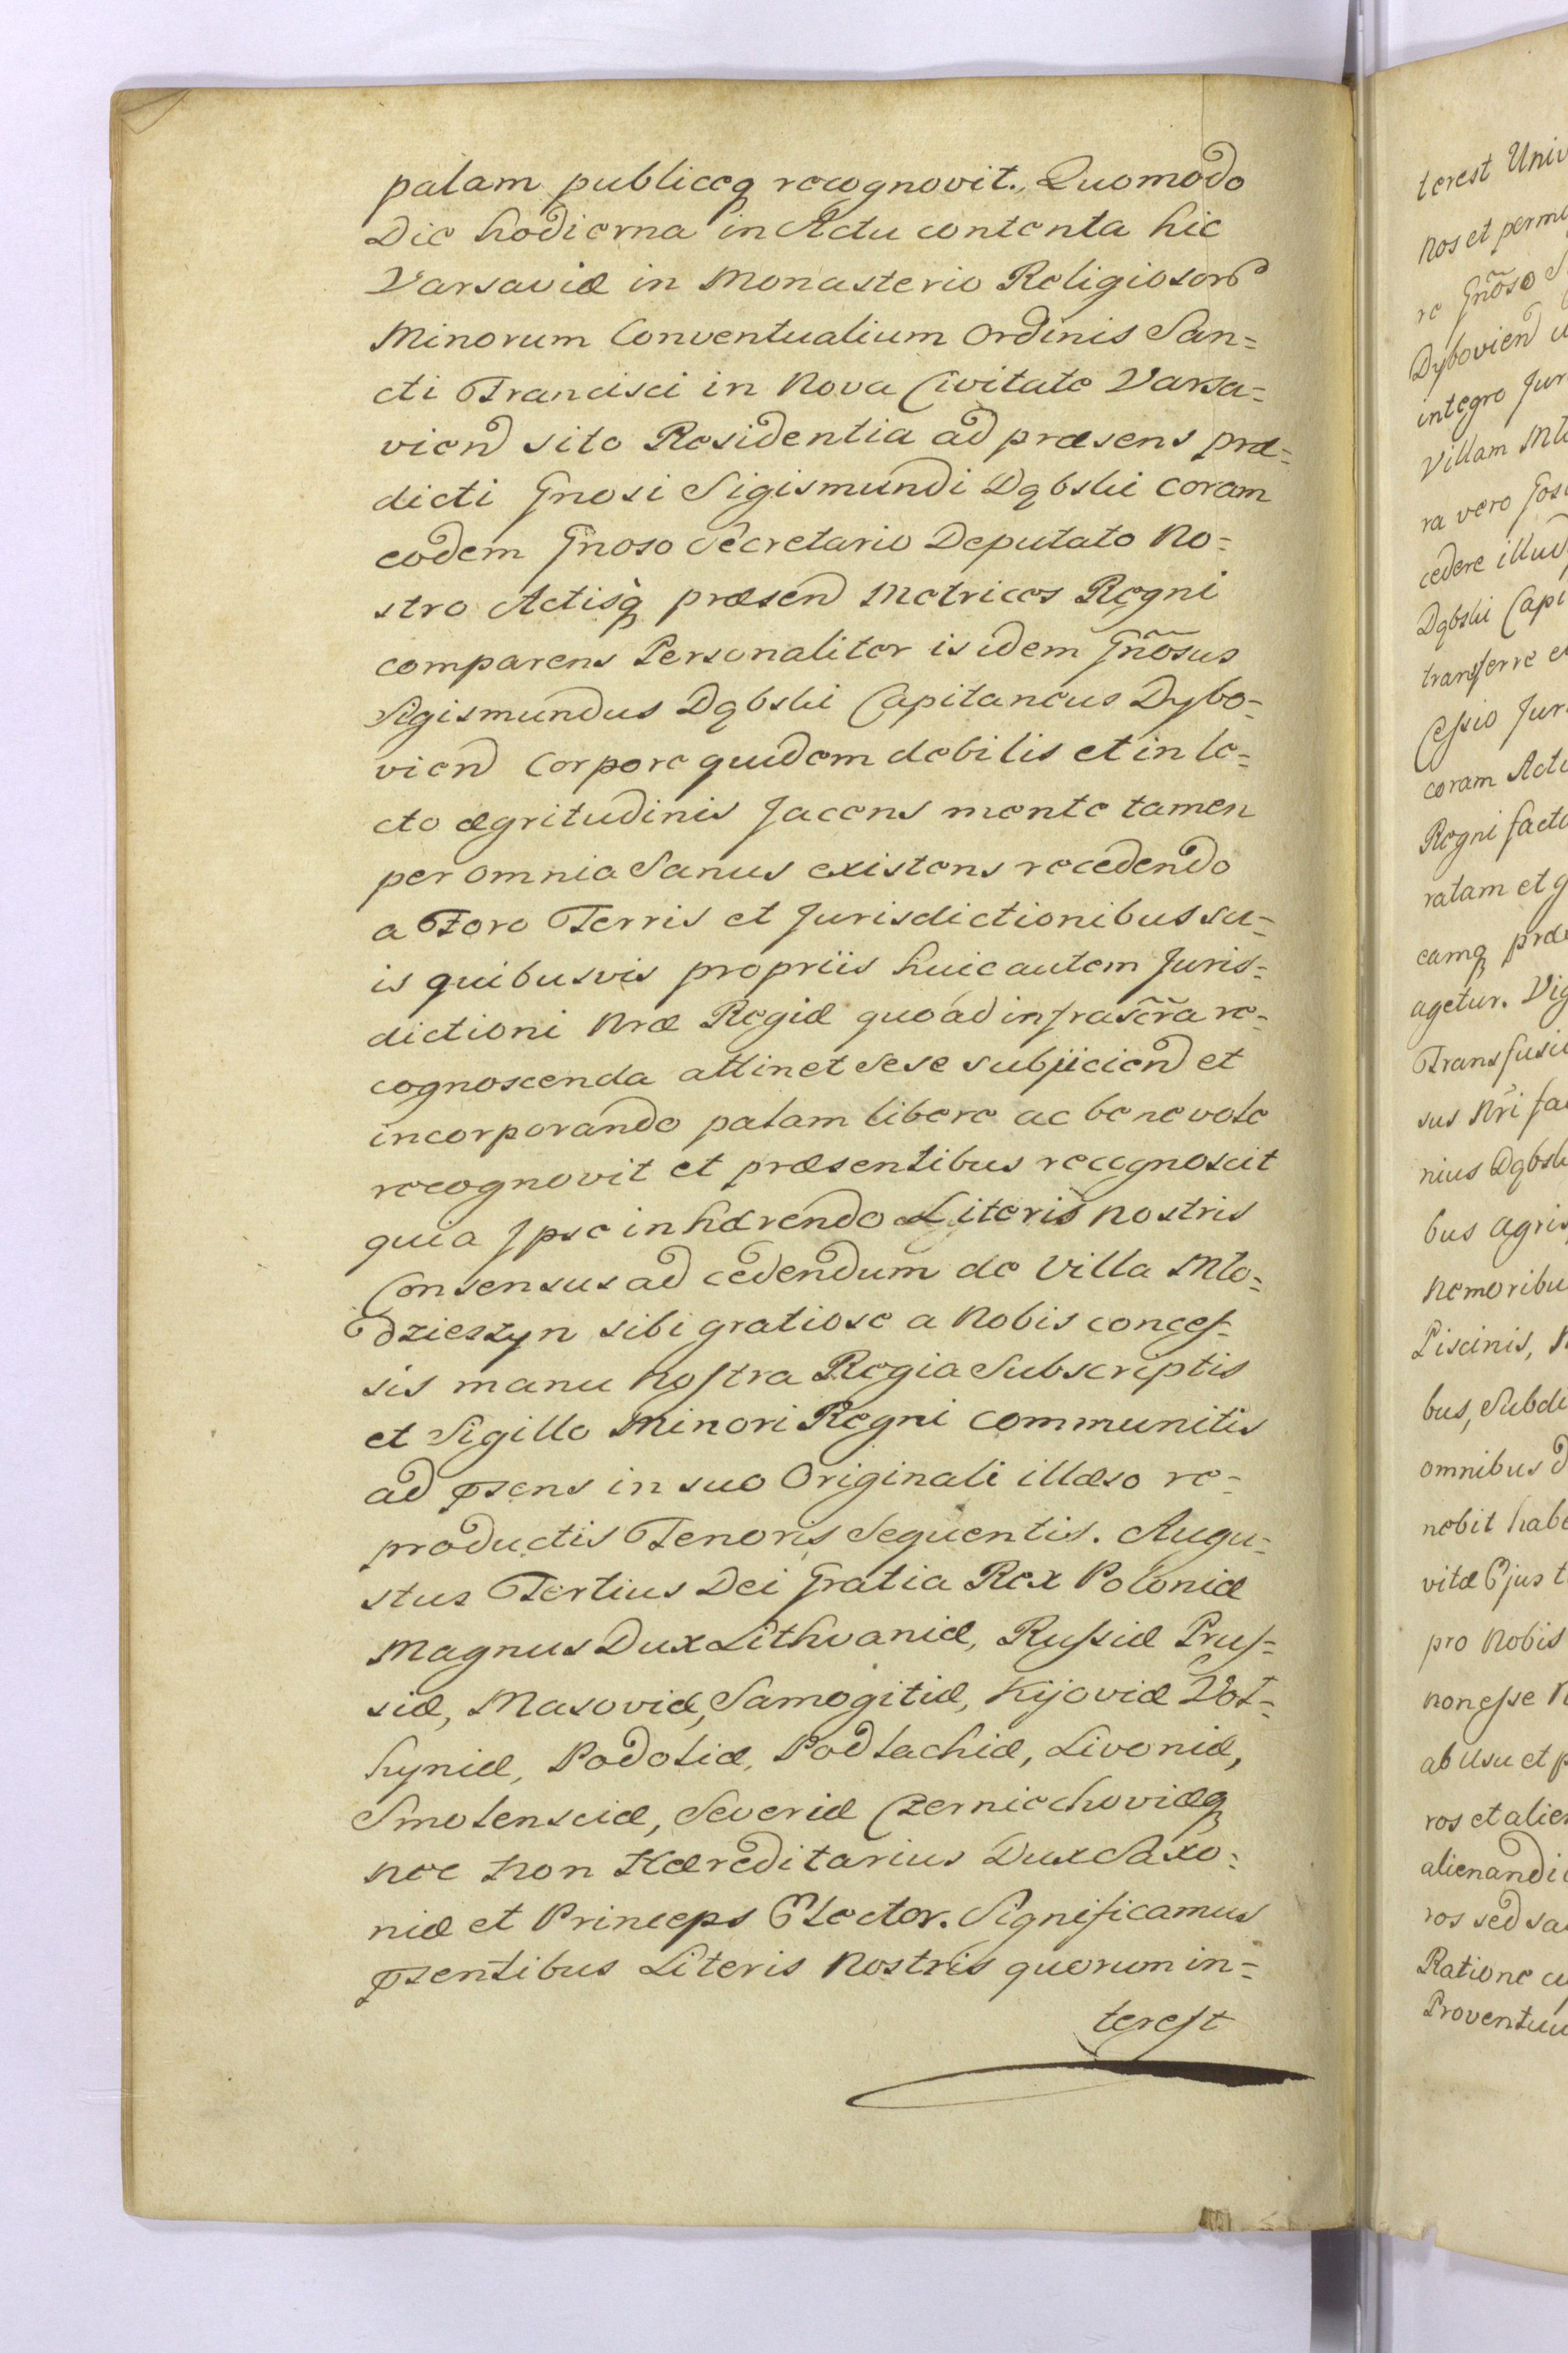 palam publiceq recognovit., Quomodo
Die hodierna in Actu contenta hic
Varsaviæ in Monasterio Religiosorũ
Minorum Conventualium Ordinis San=
cti Francisci in Nova Civitate Varsa=
vien sito Residentia ad præsens præ=
dicti Gnosi Sigismundi Dąbski coram
eodem Gnoso Secretario Deputato No=
stro Actisq præsen Metrices Regni
comparens Personaliter isidem Gnõsus
Sigismundus Dąbski Capitaneus Dybo=
vien Corpore quidem debilis et in le=
cto ægritudinis Jacens mente tamen
per omnia Sanus existens recedendo
a Foro Terris et Jurisdictionibus su=
is quibusvis propriis huic autem Juris=
dictioni Nræ Regiæ quoad infrascr̃a re=
cognoscenda attinet Sese subjicien et
incorporando palam libere ac benevole
recognovit et præsentibus recognoscit
quia Ipse inhærendo Literis nostris
Consensus ad cedendum de Villa Mło=
dzieszyn sibi gratiose a Nobis conces=
sis manu nostra Regia Subscriptis
et Sigillo Minori Regni communitis
ad psens in suo Originali illæso re=
productis Tenoris Sequentis. Augu=
stus Tertius Dei Gratia Rex Poloniæ
Magnus Dux Lithvaniæ, Russiæ Prus=
siæ, Masoviæ, Samogitiæ, Kijoviæ Vol=
hyniæ, Podoliæ, Podlachiæ, Livoniæ,
Smolensciæ, Severiæ Czerniechoviæq
nec non Hæreditarius Dux Saxo=
niæ et Princeps Elector. Significamus
psentibus Literis Nostris quorum in=
terest
terest Univ
nos et perm
re Gnõso S
Dybovien
integro Jur
Villam Mło
ra vero
cedere illud
Dąbski Capi
transferre e
Cessio Jur
coram Act
Regni facta
ratam et g
eamq præ
agetur. Vig
Transfusi
sus Nr̃i fa
nius Dąbsk
bus agris
Nemoribu
Piscinis, N
bus, Subd
omnibus d
nebit hab
vitæ Ejus t
pro Nobis
non esse N
ab Usu et p
ros et alie
alienandi
ros sed sa
Ratione cu
Proventuu